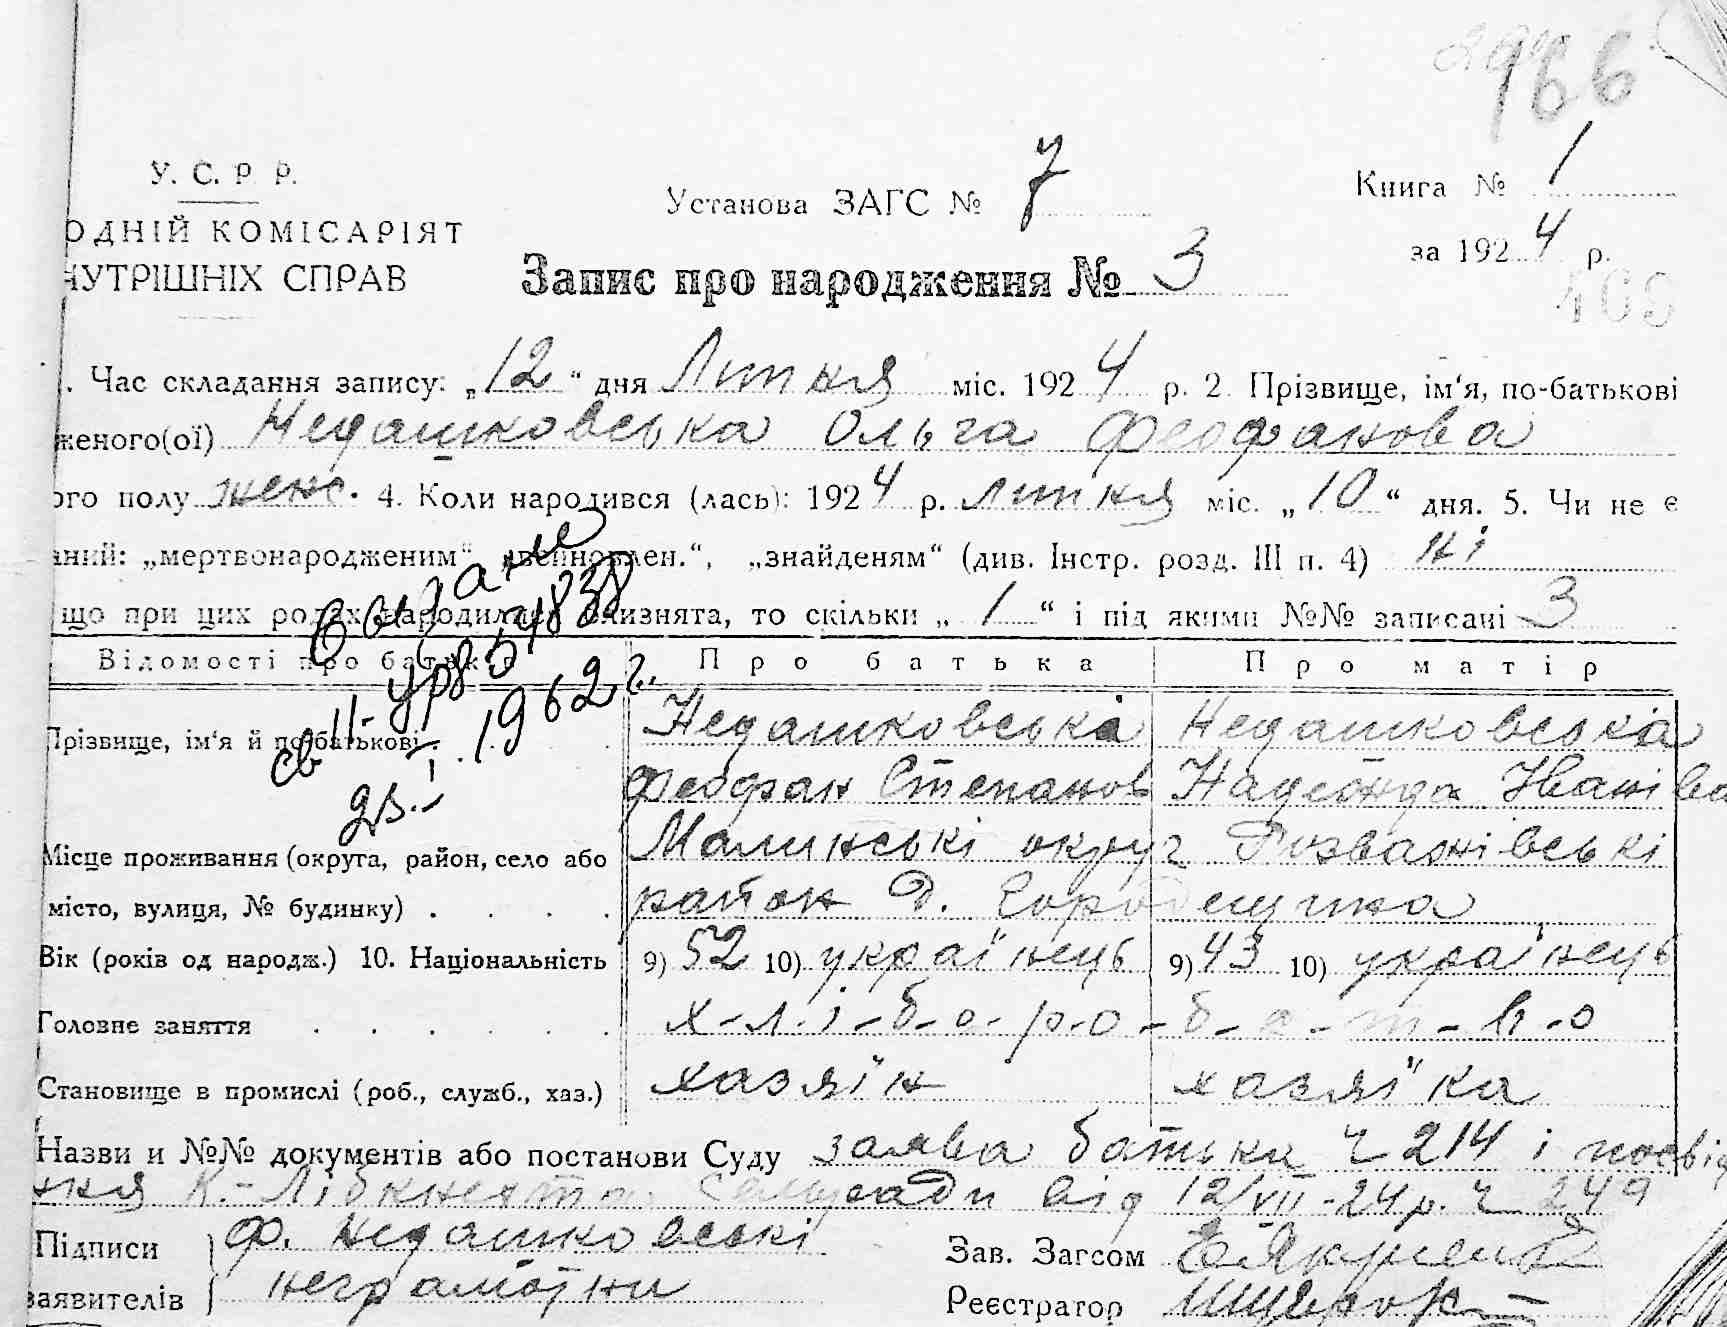 966
У. С. Р. Р.
Установа ЗАГС № 7
Книга № 1
ОДНІЙ КОМІСАРІЯТ
за 1924 р.
НУТРІШНІХ СПРАВ
Запис про народження № 3
469
. Час складання запису: „12“ дня Липня міс. 1924 р. 2. Прізвище, ім‘я, по-батькові
женого(ої) Недашковська Ольга Феофанова
ого полу женс. 4. Коли народився (лась): 1924 р. липня міс. „10“ дня. 5. Чи не є
аний: „мертвонародженим“, „двійновлен.“, „знайденям“ (див. Інстр. розд. III п. 4) ні
що при цих родах народилися близнята, то скільки „1“ і під якими №№ записані 3
Відомості про батьків
Про батька
Про матір
св II-УР 854838
23.-I. 1962 г.
Прізвище, ім‘я й по-батькові
Недашковські
Недашковська
Феофан Степанов
Надежда Іванівна
Місце проживання (округа, район, село або
Малинські округ Розважівські
місто, вулиця, № будинку)
район д. Городещина
Вік (років од народж.) 10. Національність
9) 52 10) українець
9) 43 10) українець
Головне заняття
х-л-і-б-о-р-о-б-с-т-в-о
Становище в промислі (роб., служб., хаз.)
хазяїн
хазяїка
Назви и №№ документів або постанови Суду заява батька Ч 214 і посвід
ння К.-Лібкнехта сельради від 12/VII-24 р. Ч 249
Підписи
Ф. Недашковські
Зав. Загсом
заявителів
неграмотни
Реєстратор